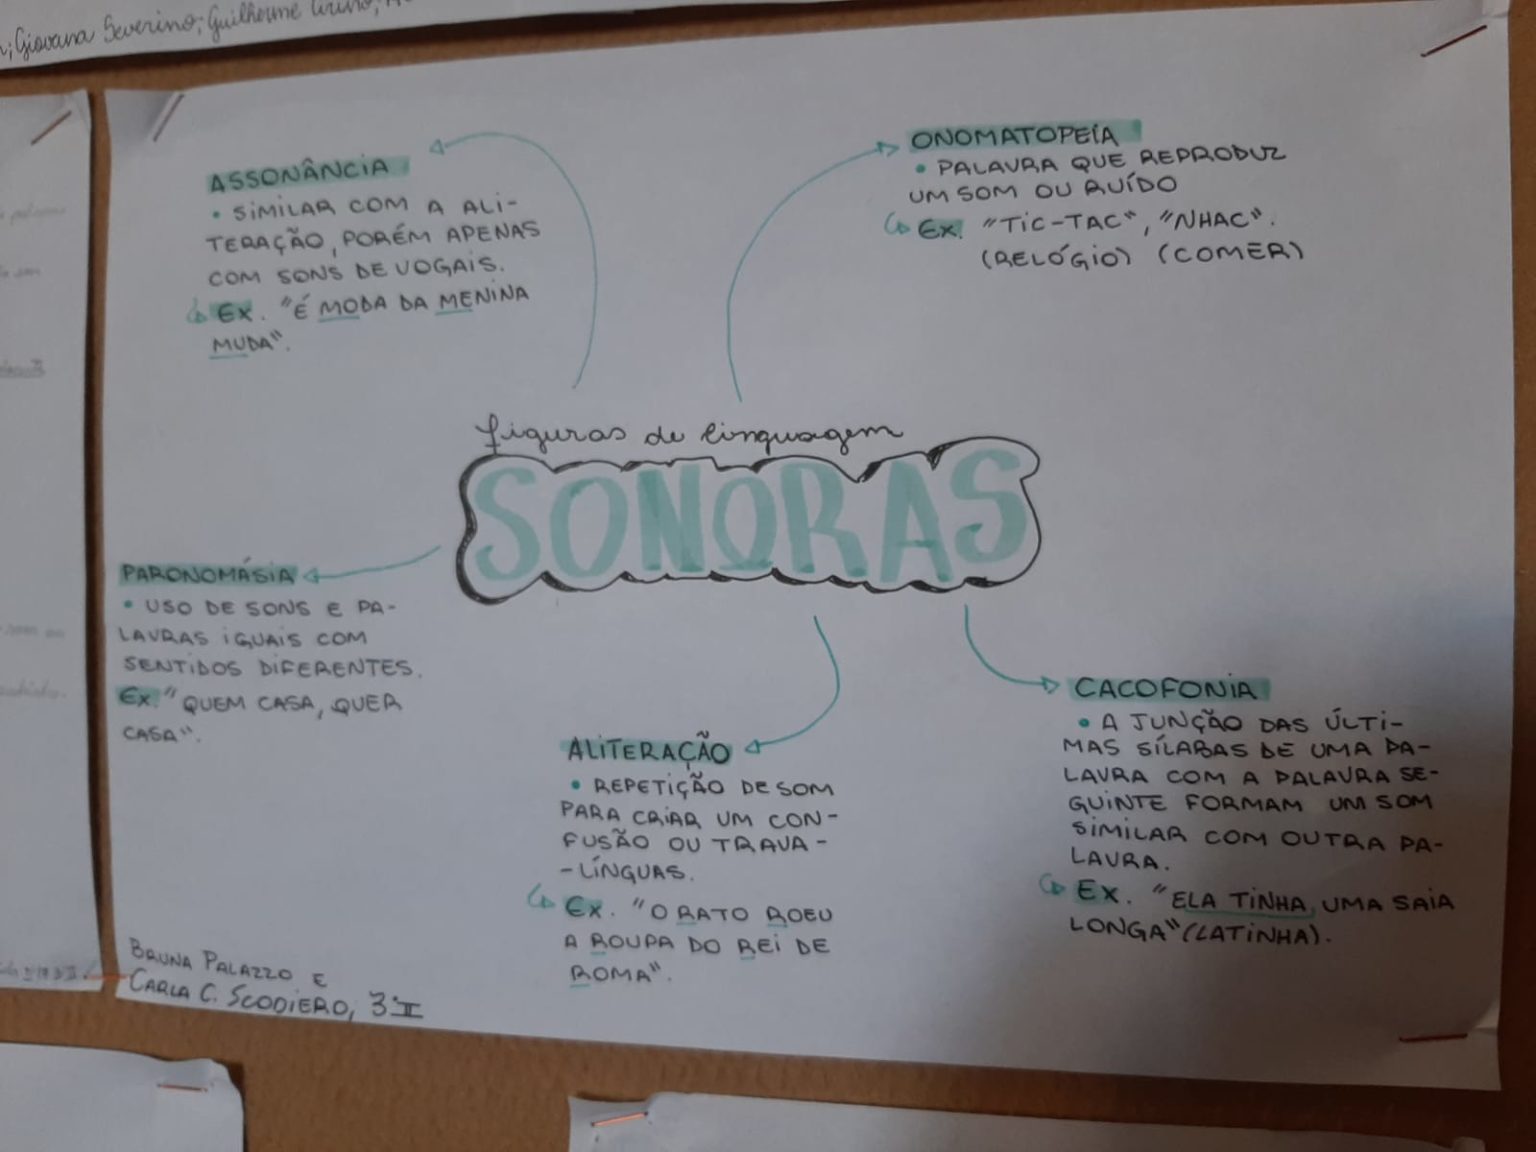 Giovana Severino; Guilherme
ASSONÂNCIA
• SIMILAR COM A ALI-
TERAÇÃO, PORÉM APENAS
COM SONS DE VOGAIS.
Ex. "É MODA DA MENINA
MUDA".
ONOMATOPEIA
• PALAVRA QUE REPRODUZ
UM SOM OU RUÍDO
Ex. "TIC-TAC", "NHAC".
(RELÓGIO) (COMER)
figuras de linguagem
SONORAS
PARONOMÁSIA
• USO DE SONS E PA-
LAVRAS IGUAIS COM
SENTIDOS DIFERENTES.
Ex: "QUEM CASA, QUER
CASA".
ALITERAÇÃO
• REPETIÇÃO DE SOM
PARA CRIAR UM CON-
FUSÃO OU TRAVA-
-LÍNGUAS.
Ex. "O RATO ROEU
A ROUPA DO REI DE
ROMA".
CACOFONIA
• A JUNÇÃO DAS ÚLTI-
MAS SÍLABAS DE UMA PA-
LAVRA COM A PALAVRA SE-
GUINTE FORMAM UM SOM
SIMILAR COM OUTRA PA-
LAVRA.
Ex. "ELA TINHA UMA SAIA
LONGA" (LATINHA).
BRUNA PALAZZO E
CARLA C. SCODIERO, 3ºII